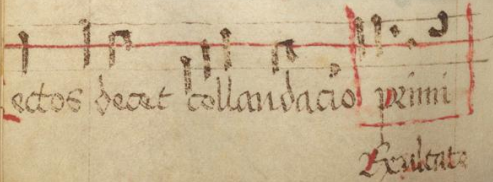 ectos decet collaudacio primi
Exultate